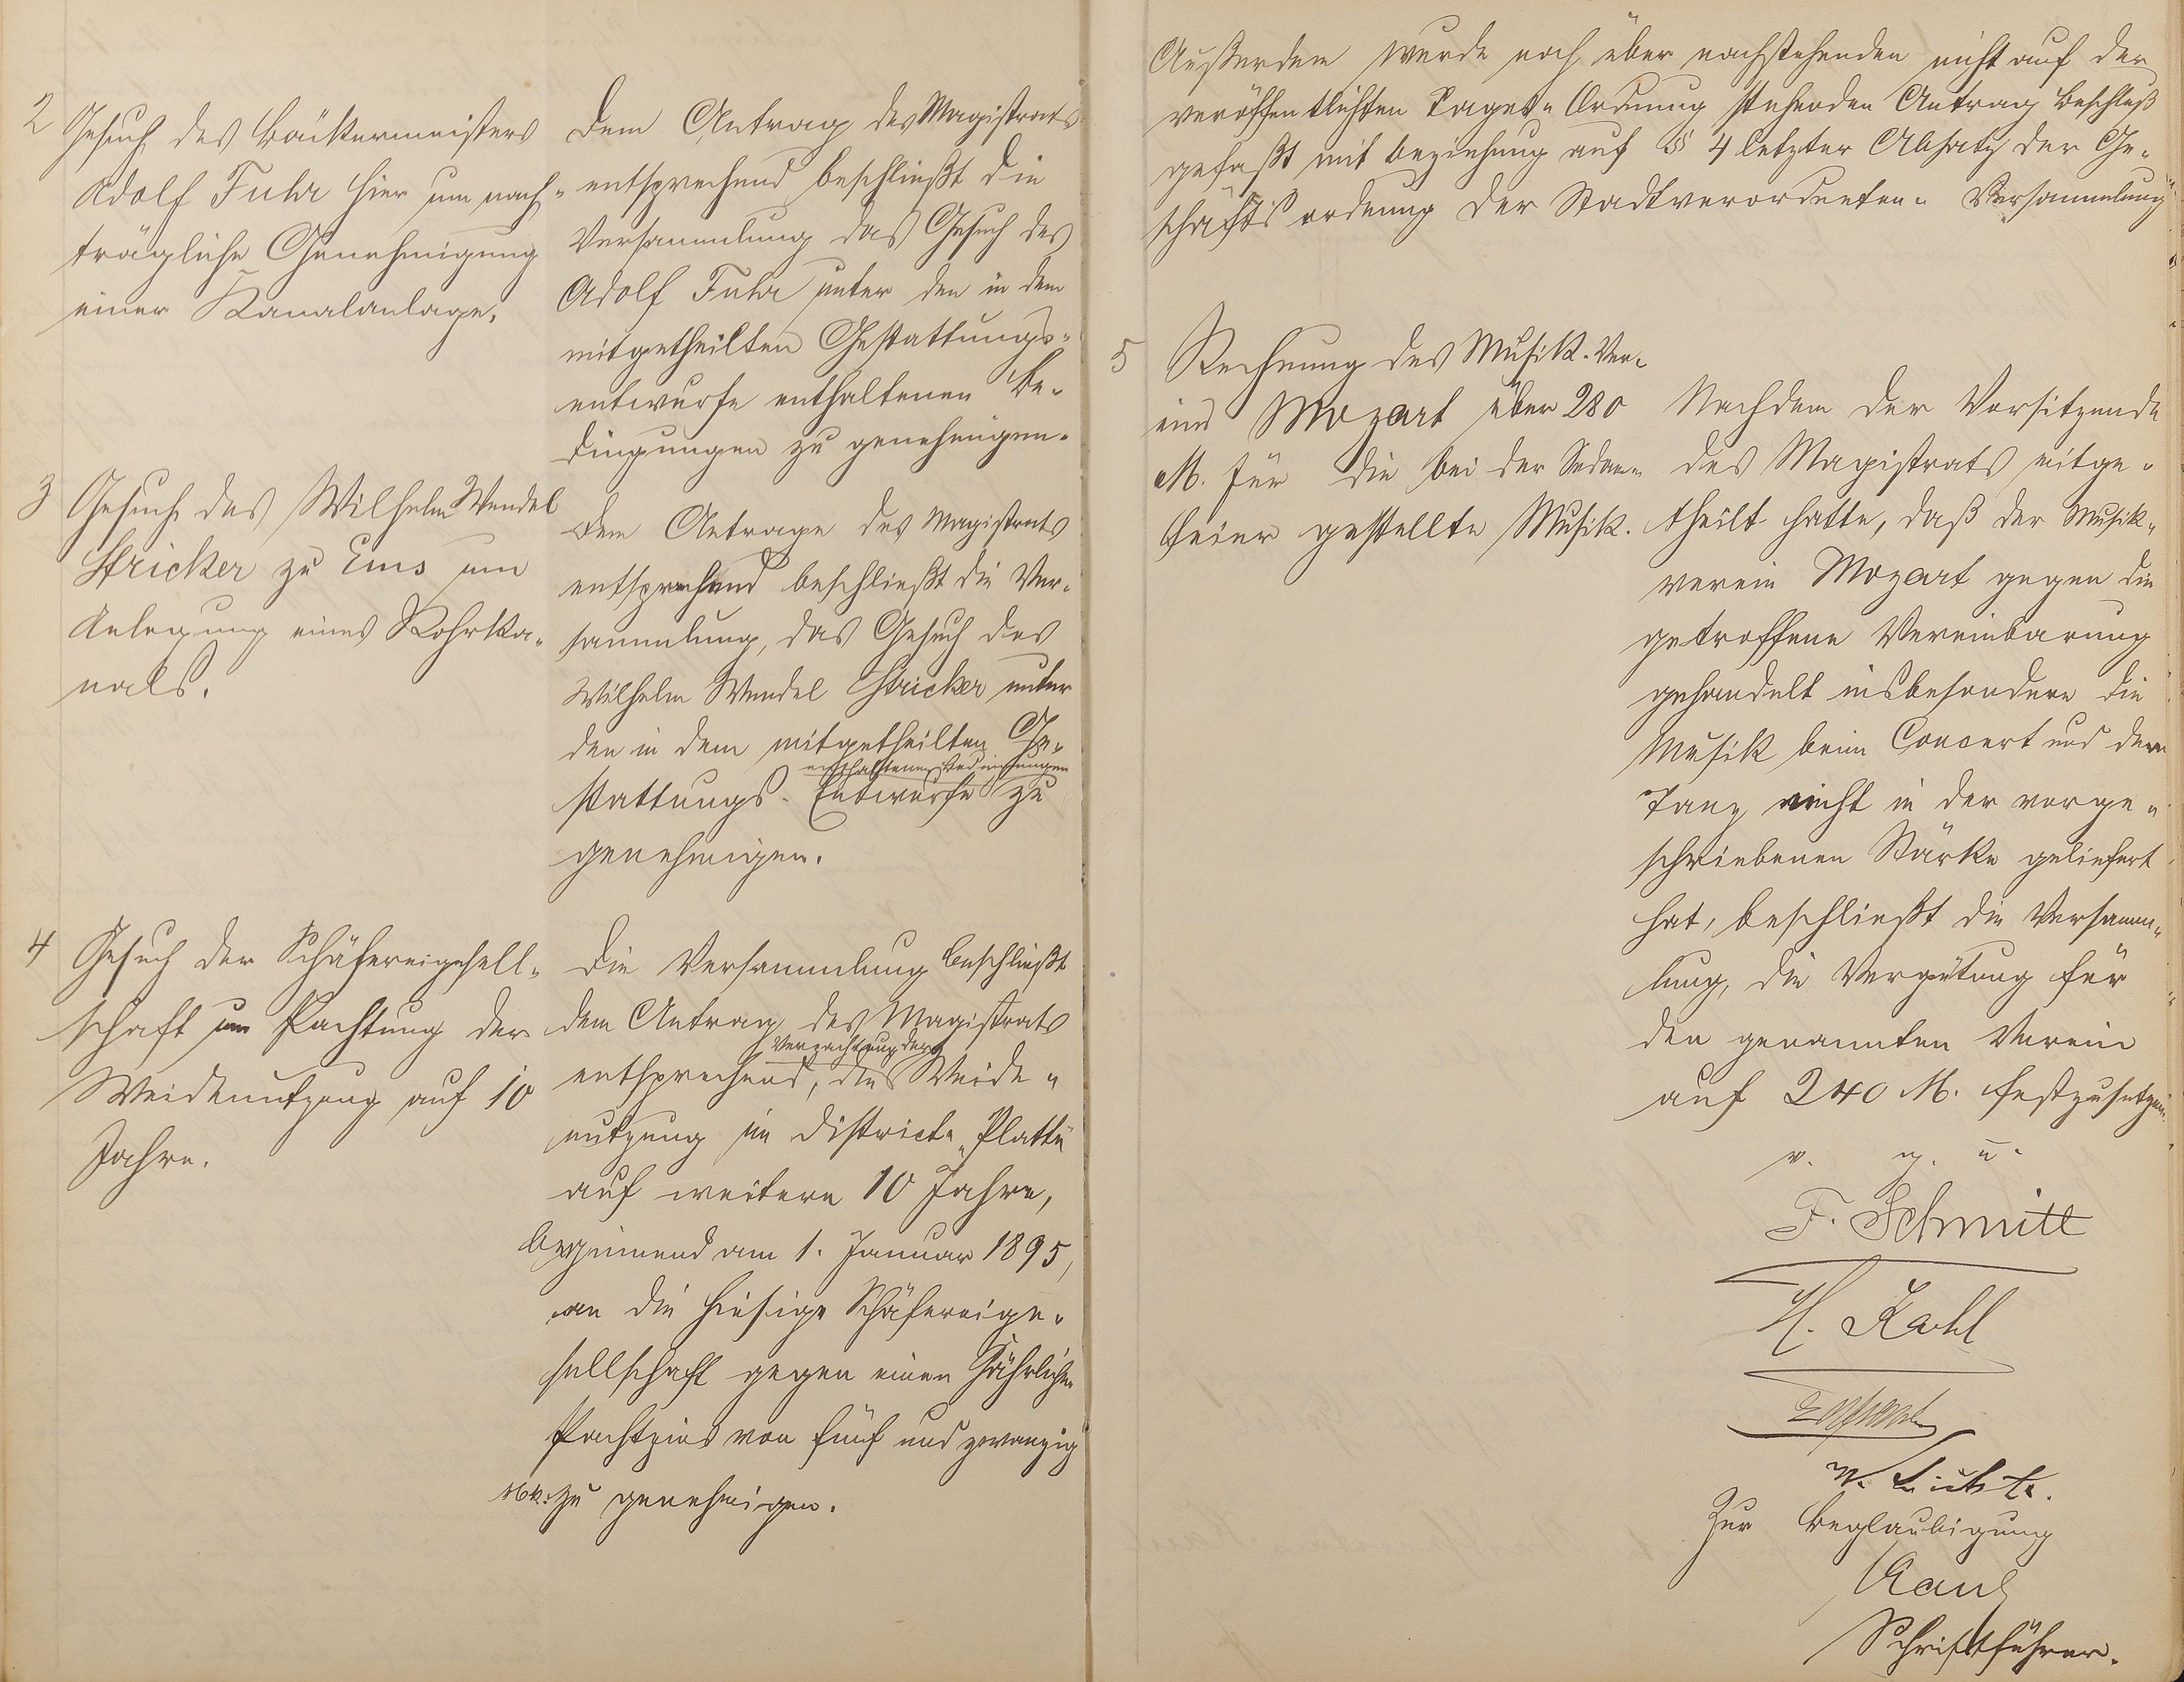 2
Gesuch des Bäckermeisters
Adolf Fuhr hier um nach-
trägliche Genehmigung
einer Kanalanlage.
Dem Antrag des Magistrats
entsprechend beschließt die
Versammlung das Gesuch des
Adolf Fuhr unter den in dem
mitgetheilten Gestattungs-
entwurfe enthaltenen Be-
dingungen zu genehmigen.
3
Gesuch des Wilhelm Wendel
Stricker zu Ems um
Anlegung eines Rohrka-
nals.
Dem Antrage des Magistrats
entsprechend beschließt die Ver-
sammlung, das Gesuch des
Wilhelm Wendel Stricker unter
den in dem mitgetheilten Ge-
enthaltenen Bedingungen
stattungs-Entwurfe zu
genehmigen.
4
Gesuch der Schäfereigesell-
schaft um Pachtung der
Weidenutzung auf 10
Jahre.
Die Versammlung beschließt
dem Antrag des Magistrats
Verpachtung der
entsprechend, die Weide-
nutzung im Districte "Platte"
auf weitere 10 Jahre,
beginnend am 1. Januar 1895,
an die hiesige Schäfereige-
sellschaft gegen einen jährlichen
Pachtzins von fünf und zwanzig
Mk. zu genehmigen.
Außerdem wurde noch über nachstehenden nicht auf der
veröffentlichten Tages-Ordnung stehenden Antrag Beschluß
gefaßt mit Beziehung auf § 4 letzter Absatz der Ge-
schäftsordnung der Stadtverordneten-Versammlung
5
Rechnung des Musik-Ver-
eins Mozart über 280
M. für die bei der Sedan-
feier gestellte Musik.
Nachdem der Vorsitzende
des Magistrats mitge-
theilt hatte, daß der Musik-
verein Mozart gegen die
getroffene Vereinbarung
gehandelt insbesondere die
Musik beim Concert und dem
Tanz nicht in der vorge-
schriebenen Stärke geliefert
hat, beschließt die Versamm-
lung, die Vergütung für
den genannten Verein
auf 240 M. festzusetzen.
v. g. u.
F. Schmitt
H. Kahl
Zur Beglaubigung
Schriftführer.